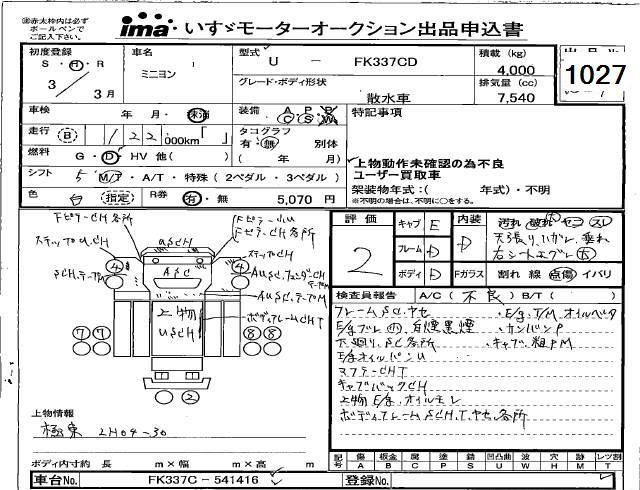 ※赤太枠内は必ず
ボールペンで
ご記入下さい。
ima いすゞモーターオークション出品申込書
初度登録
S・H・R
3/3月
車名
ミニヨン
型式
U - FK337CD
積載 (kg)
4,000
グレード・ボディ形状
散水車
排気量 (cc)
7,540
1027
車検
年 月・抹消
装備 A P B
C S W
特記事項
走行 B
122,000km「 」
タコグラフ
有・無 別体
( 年 月)
燃料 G・D・HV 他( )
シフト 5 M/T・A/T・特殊 (2ペダル・3ペダル)
上物動作未確認の為不良
ユーザー買取車
架装物年式:( 年式)・不明
※不明の場合は、不明に○をする。
色 白 (指定)
R券 有・無 5,070 円
FピラーCH各所
ステップU,CH
SCH,テープM
USCH
ASC
上物
USCH
FピラーU
FピラーCH,各所
ステップCH
AUSC,フェンダCH
テープM
AUSC,テープM
ボディフレームCHT
④ ④
⑦⑦ ⑧⑧
②
評価
2
キャブ E
フレーム D
ボディ D
内装
D
Fガラス
汚れ 破れ ヤコ スレ
天張り,ハガレ,垂れ
右シートエグレ大
割れ 線 点傷 イバリ
検査員報告 A/C(不良)B/T( )
フレームSC,ヤセ
・E/g,T/M,オイルベタ
E/gブレ大,白煙黒煙
・カンバンP
下廻り,SC各所
・キャブ,粗PM
E/gオイルパンU
マフラーCHT
キャブバックCH
上物E/g,オイルモレ
ボディフレームSCH,T,ヤセ,各所
上物情報
極東 LH04-30
ボディ内寸約 長 m×幅 m×高 m
記号 傷 板金 腐 塗 錆 凹凸曲 波 穴 跡 レツ割
A B C P S U W H M T
車台No. FK337C-541416
登録No.